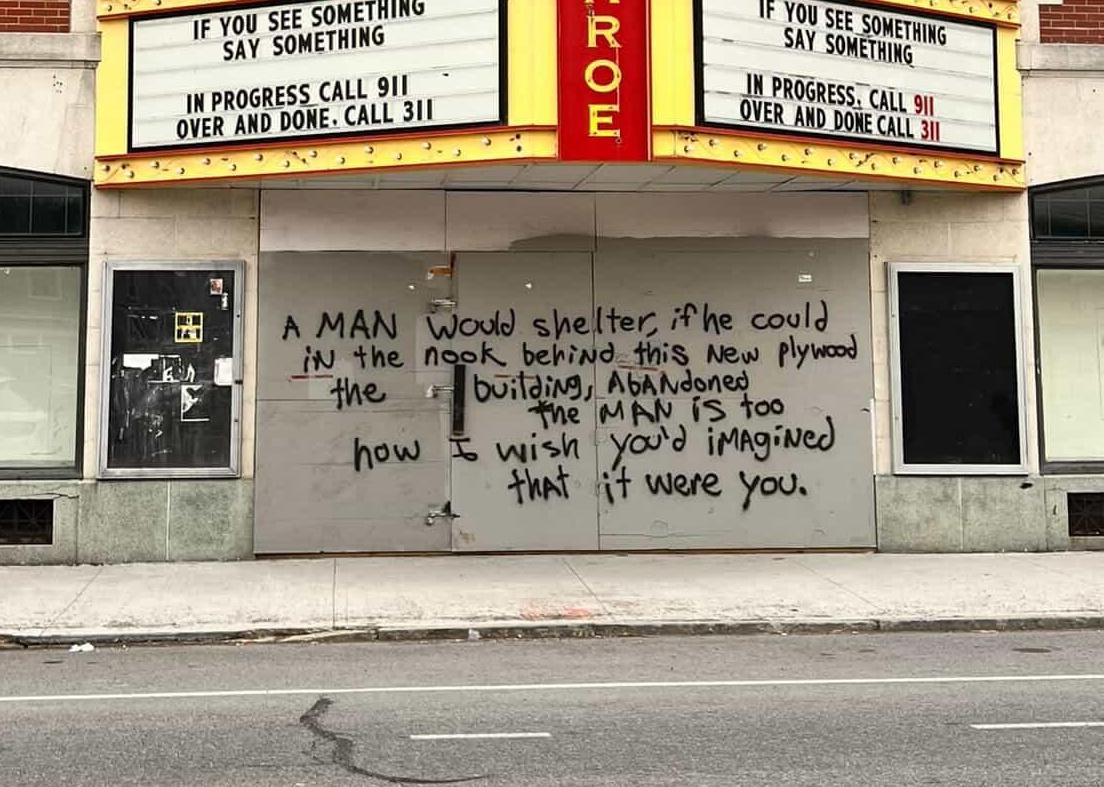 IF YOU SEE SOMETHING
SAY SOMETHING
IN PROGRESS CALL 911
OVER AND DONE. CALL 311
ROE
IF YOU SEE SOMETHING
SAY SOMETHING
IN PROGRESS. CALL 911
OVER AND DONE CALL 311
A MAN would shelter, if he could
in the nook behind this New plywood
the building, AbANdoned
the MAN is too
how I wish you'd iMAgiNed
thAt it were you.